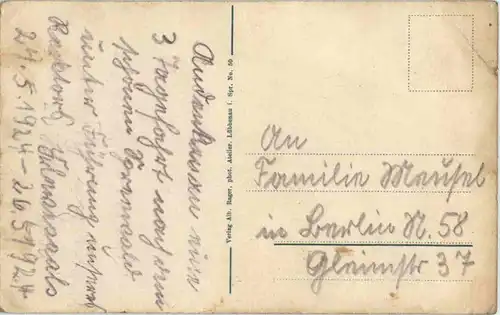 Andenken an eine
3 Tagefahrt nach dem
schönen Spreewald
unter Führung unseres
Rektors
24.5.1924 – 26.5.1924
Verlag Alb. Rager, phot. Atelier, Lübbenau i. Spr. No. 50
An
Familie Meusel
in Berlin N. 58
Gleimstr 37